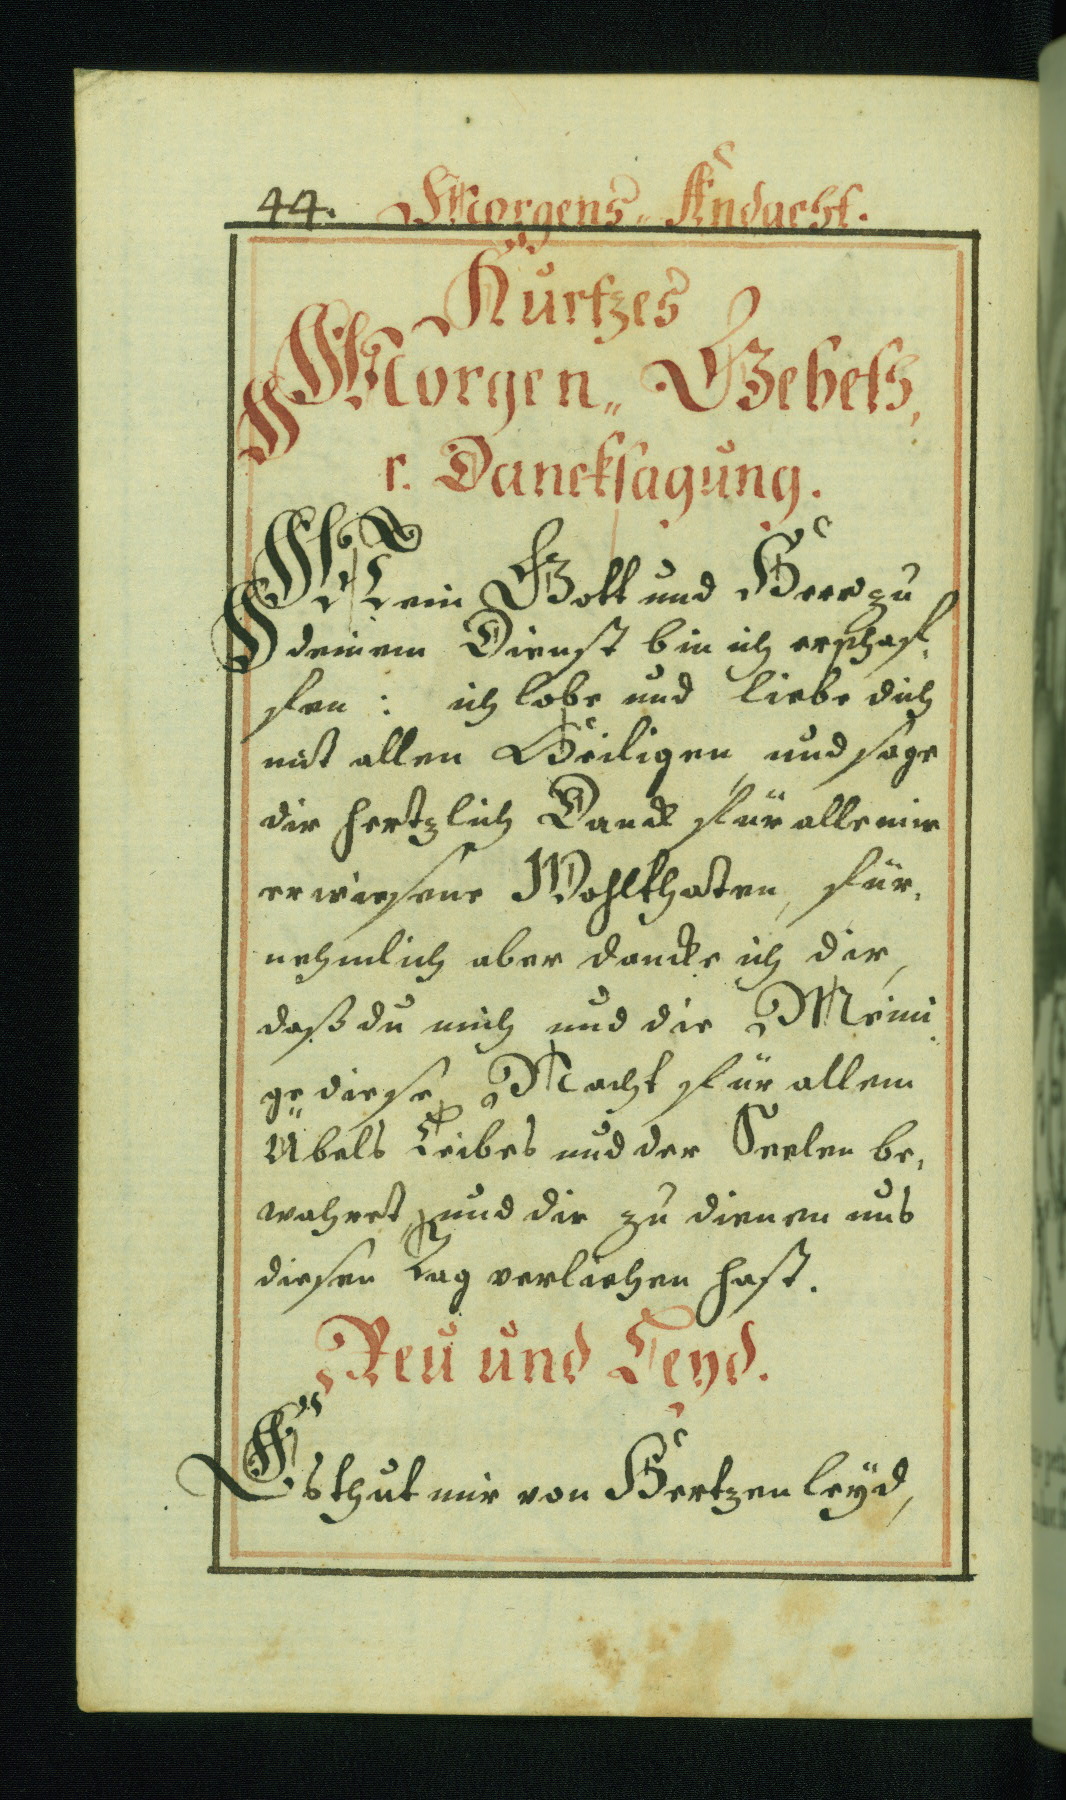 44. Morgens„ Andacht.
Kurtzes
Morgen„ Gebeth,
r. Dancksagung.
Mein Gott und Herr zu
deinem Dienst bin ich erschaf„
fen: ich lobe und liebe dich
mit allen Heiligen, und sage
dir hertzlich Danck für alle mir
erwiesene Wohlthaten, für„
nehmlich aber dancke ich dir,
daß du mich und die Meini„
ge diese Nacht für allem
Übels Leibes und der Seelen be„
wahret, und dir zu dienen uns
diesen Tag verliehen hast.
Reu und Leyd.
Es thut mir von Hertzen leÿd,